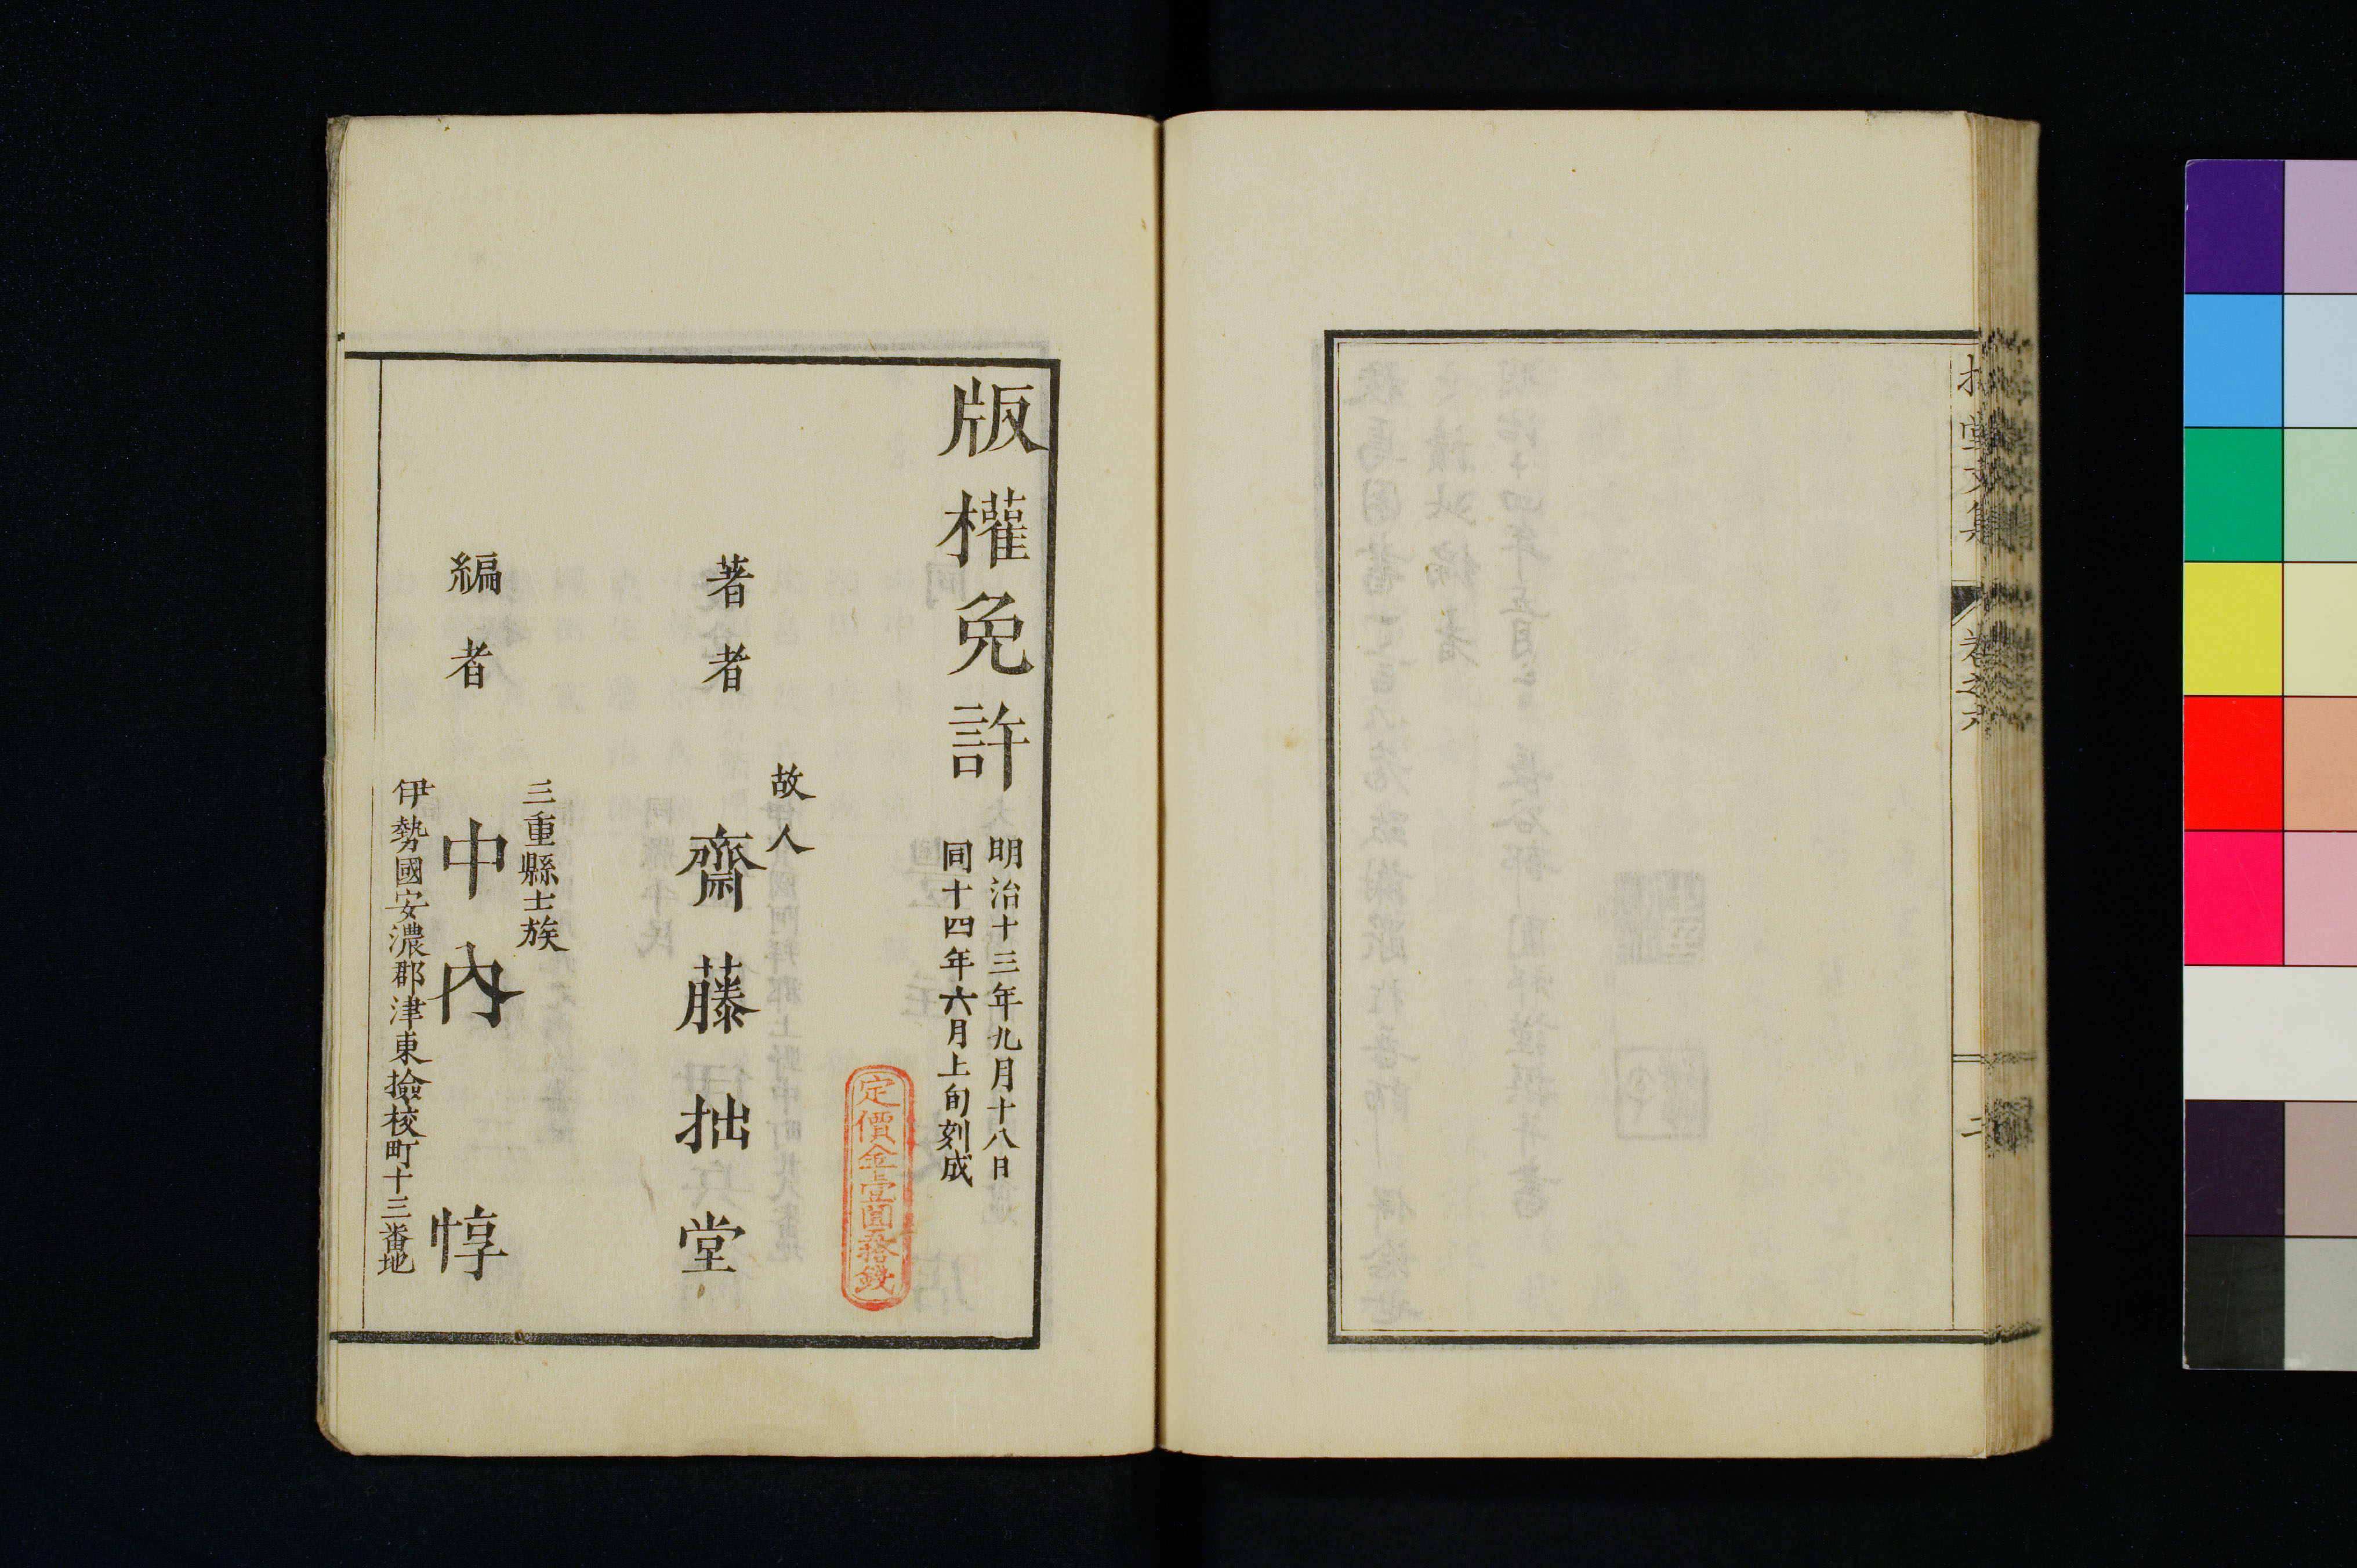 拙堂文集
卷之六
二
版權免許
明治十三年九月十八日
同十四年六月上旬刻成
定價金壹圓五拾錢
故人
著者
齋藤拙堂
三重縣士族
編者
中內惇
伊勢國安濃郡津東撿校町十三番地